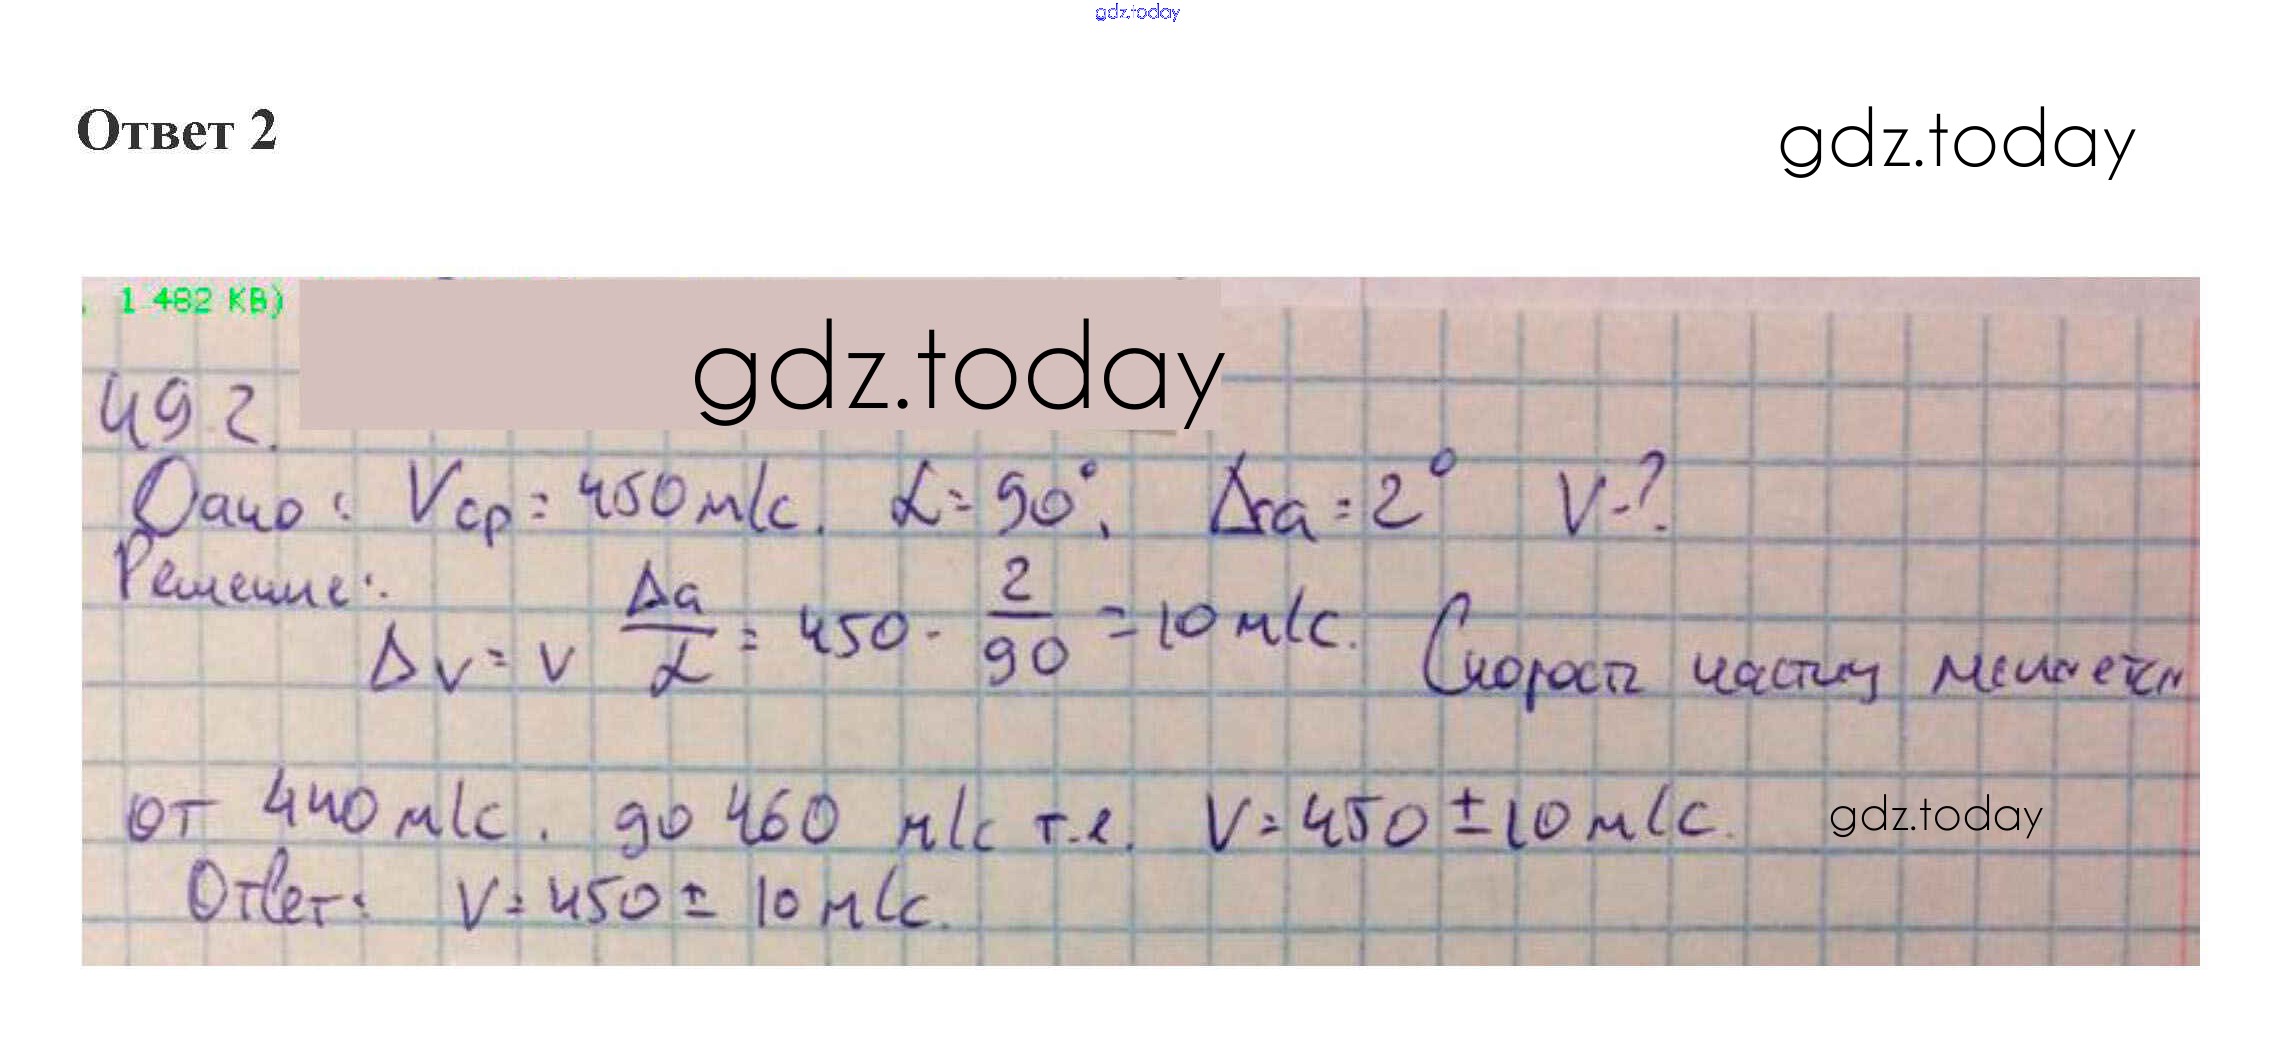 gdz.today
Ответ 2
gdz.today
1 482 КВ)
gdz.today
492.
Дано: Vср = 450 м/с. α = 90°, Δα = 2° V-?
Решение:
Δv = v Δα/α = 450 · 2/90 = 10 м/с. Скорость частиц меняется
от 440 м/с. до 460 м/с т.е. V = 450 ± 10 м/с.
gdz.today
Ответ: V = 450 ± 10 м/с.